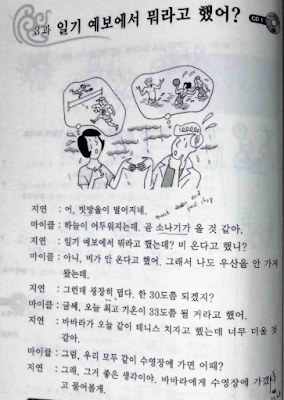 3과 일기 예보에서 뭐라고 했어?
CD 1
지연 : 어, 빗방울이 떨어지네.
마이클 : 하늘이 어두워지는데, 곧 소나기가 올 것 같아.
지연 : 일기 예보에서 뭐라고 했는데? 비 온다고 했니?
마이클 : 아니, 비가 안 온다고 했어. 그래서 나도 우산을 안 가져
왔는데.
지연 : 그런데 굉장히 덥다. 한 30도쯤 되겠지?
마이클 : 글쎄, 오늘 최고 기온이 33도쯤 될 거라고 했어.
지연 : 바바라가 오늘 같이 테니스 치자고 했는데 너무 더울 것
같아.
마이클 : 그럼, 우리 모두 같이 수영장에 가면 어때?
지연 : 그래, 그거 좋은 생각이야. 바바라에게 수영장에 가겠냐
고 물어볼게.